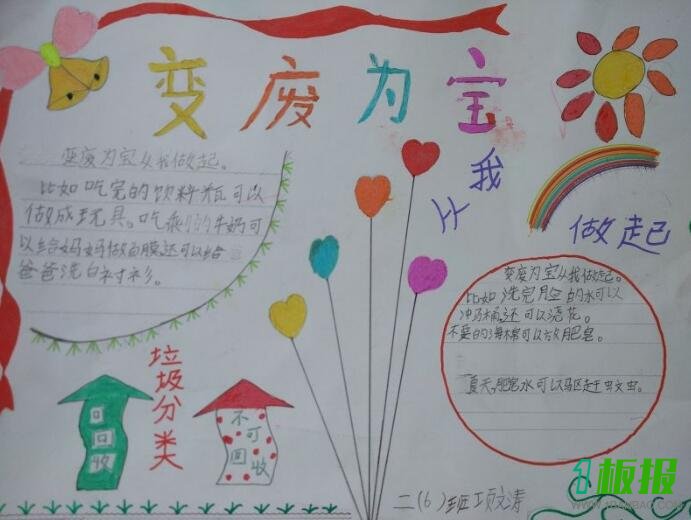 变废为宝
从我做起
变废为宝从我做起。
比如吃完的饮料瓶可以
做成玩具。吃剩的牛奶可
以给妈妈做面膜,还可以给
爸爸洗白衬衫。
变废为宝从我做起。
比如洗完脸的水可以
冲马桶,还可以浇花。
不要的海棉可以放肥皂。
夏天,肥皂水可以驱赶蚊虫。
垃圾分类
可回收
不可回收
二(6)班项文涛
板报